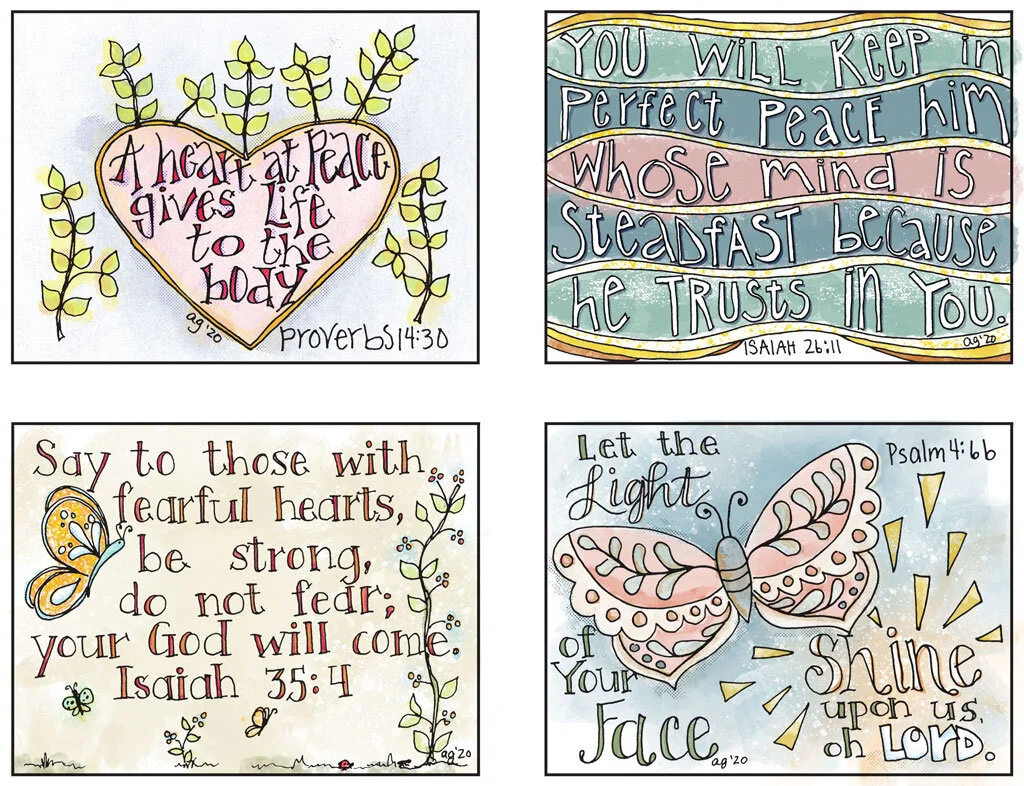 A heart at Peace
gives Life
to the
body
ag '20
Proverbs 14:30
YOU WiLL KEEP in
PERFECT PEACE him
WHOSE mind iS
STEADFAST because
he TRUSTS in You.
ISAIAH 26:11
ag '20
Say to those with
fearful hearts,
be strong,
do not fear;
your God will come.
Isaiah 35:4
ag '20
Let the
Light
Psalm 4:6b
of
Your
Face
ag '20
Shine
upon us,
oh LORD.